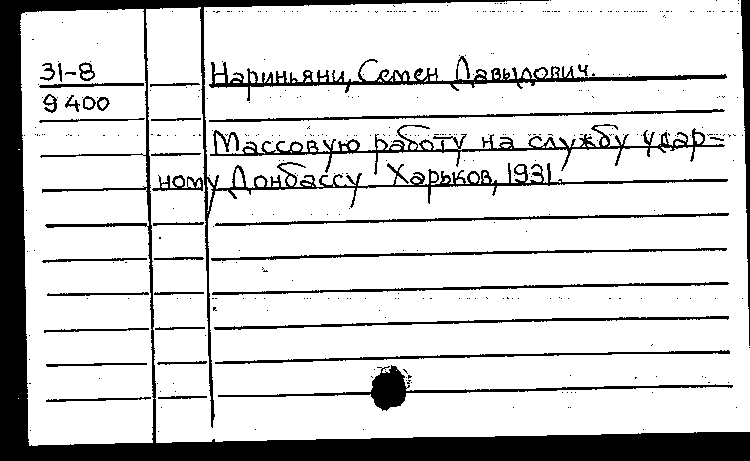 31-8
9400
Нариньяни, Семен Давыдович.
Массовую работу на службу удар=
ному Донбассу Харьков, 1931.